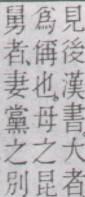 見後漢書大者
爲俑也。母之昆
舅者、妻黨之別